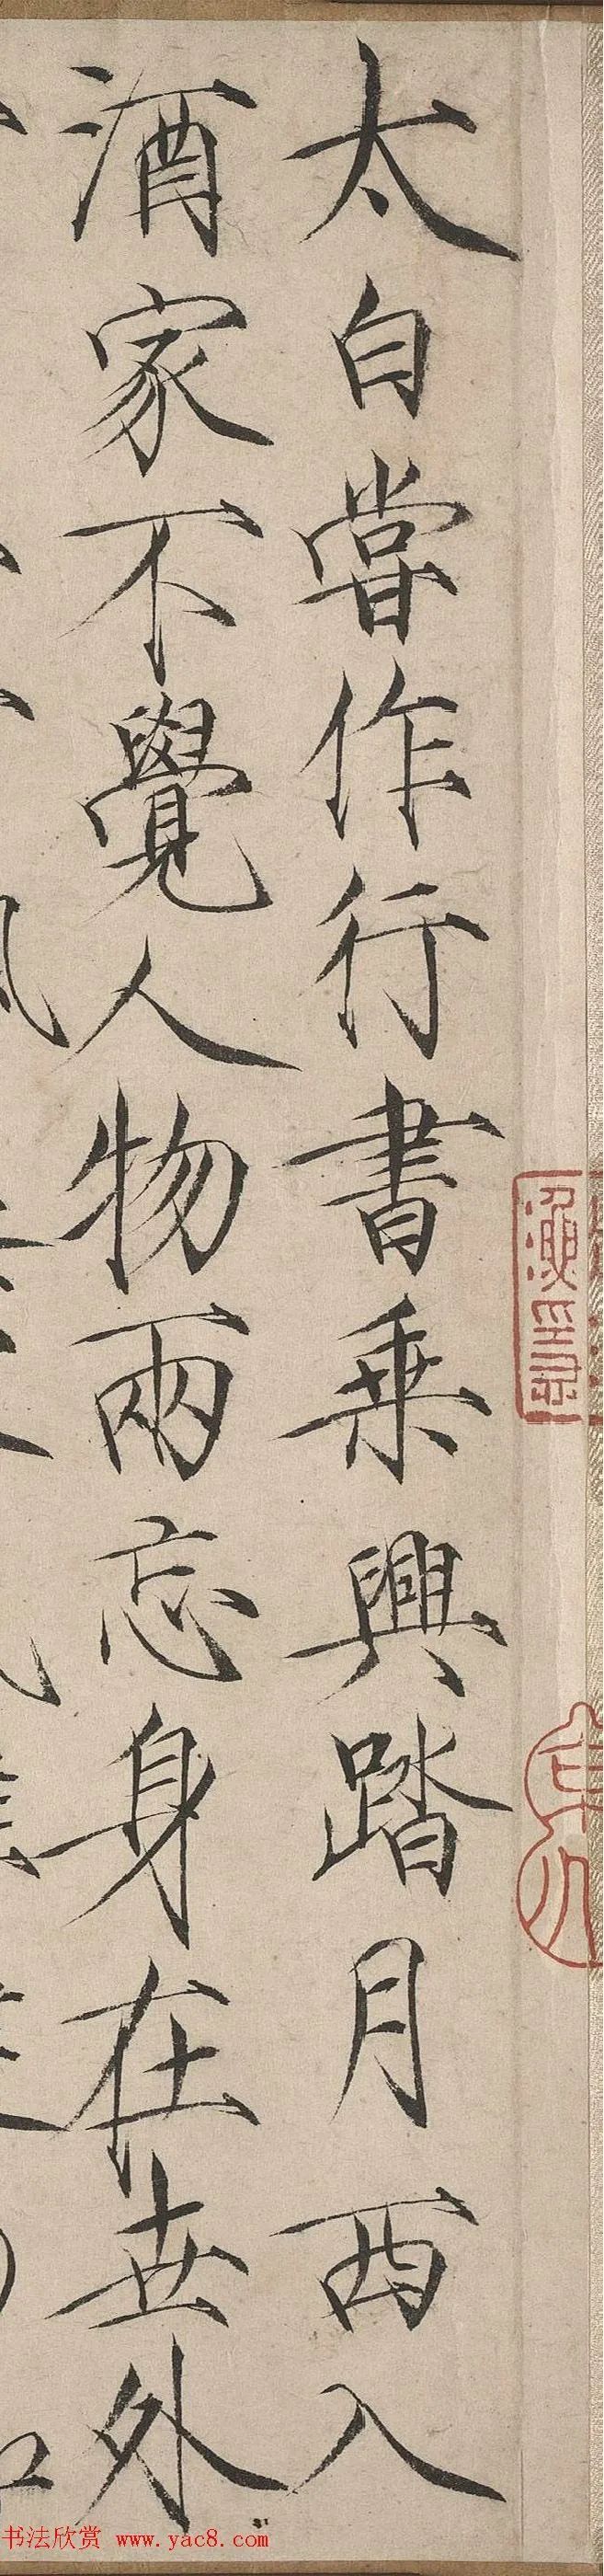 太白甞作行書乗興踏月西入
酒家不覺人物兩忘身在世外
书法欣赏 www.yac8.com